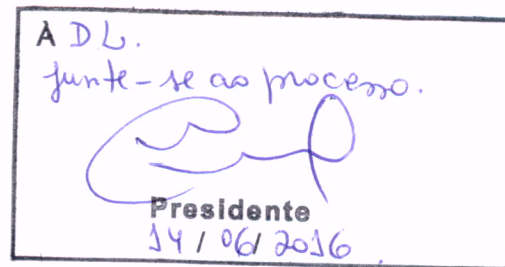 A DL.
Junte-se ao processo.
Presidente
14/06/2016.